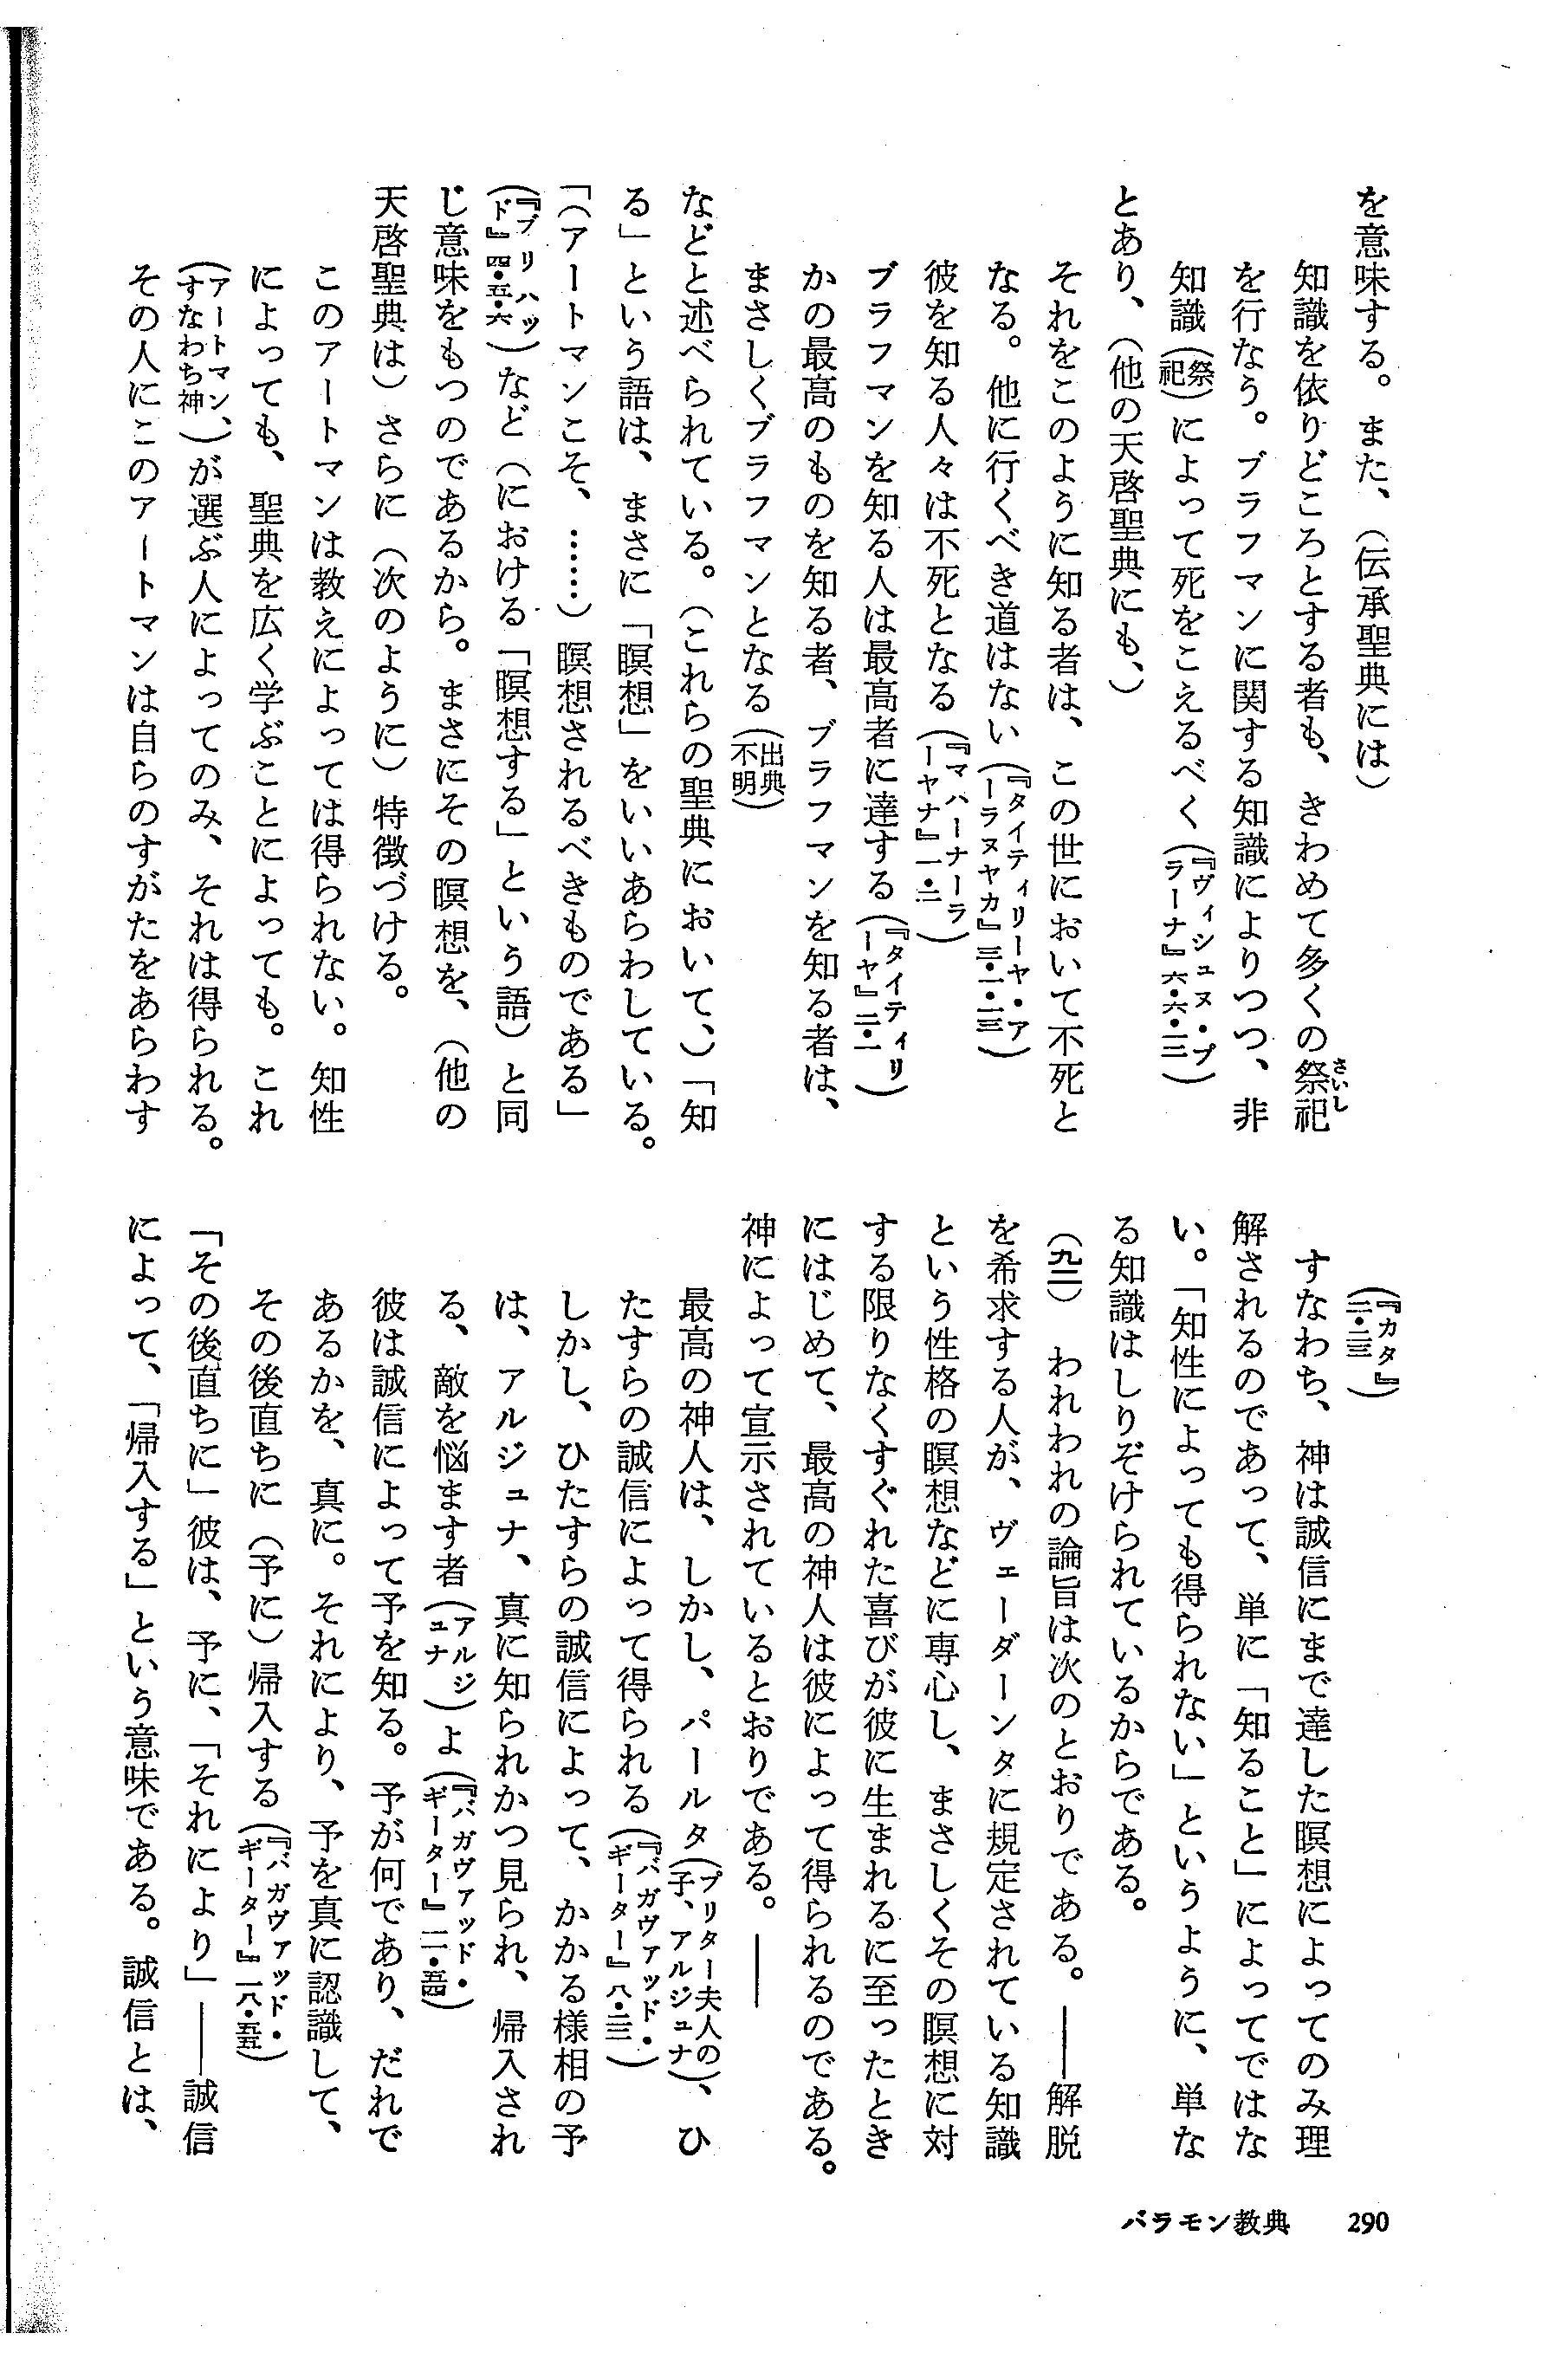 を意味する。また、（伝承聖典には）
知識を依りどころとする者も、きわめて多くの祭祀
さいし
を行なう。ブラフマンに関する知識によりつつ、非
知識（祭祀）によって死をこえるべく（『ヴィシュヌ・プラーナ』六・六・一二）
とあり、（他の天啓聖典にも、）
それをこのように知る者は、この世において不死と
なる。他に行くべき道はない（『タイティリーヤ・アーラヌヤカ』三・一・三）
彼を知る人々は不死となる（『マハーナーラーヤナ』一・一一）
ブラフマンを知る人は最高者に達する（『タイティリーヤ』二・一）
かの最高のものを知る者、ブラフマンを知る者は、
まさしくブラフマンとなる（出典不明）
などと述べられている。（これらの聖典において、）「知
る」という語は、まさに「瞑想」をいいあらわしている。
「（アートマンこそ、……）瞑想されるべきものである」
（『ブリハッド』四・五・六）など（における「瞑想する」という語）と同
じ意味をもつのであるから。まさにその瞑想を、（他の
天啓聖典は）さらに（次のように）特徴づける。
このアートマンは教えによっては得られない。知性
によっても、聖典を広く学ぶことによっても。これ
（アートマン、すなわち神）が選ぶ人によってのみ、それは得られる。
その人にこのアートマンは自らのすがたをあらわす
（『カタ』二・二三）
すなわち、神は誠信にまで達した瞑想によってのみ理
解されるのであって、単に「知ること」によってではな
い。「知性によっても得られない」というように、単な
る知識はしりぞけられているからである。
（九二）　われわれの論旨は次のとおりである。――解脱
を希求する人が、ヴェーダーンタに規定されている知識
という性格の瞑想などに専心し、まさしくその瞑想に対
する限りなくすぐれた喜びが彼に生まれるに至ったとき
にはじめて、最高の神人は彼によって得られるのである。
神によって宣示されているとおりである。――
最高の神人は、しかし、パールタ（プリター夫人の子、アルジュナ）、ひ
たすらの誠信によって得られる（『バガヴァッド・ギーター』八・二二）
しかし、ひたすらの誠信によって、かかる様相の予
は、アルジュナ、真に知られかつ見られ、帰入され
る、敵を悩ます者（アルジュナ）よ（『バガヴァッド・ギーター』一一・五四）
彼は誠信によって予を知る。予が何であり、だれで
あるかを、真に。それにより、予を真に認識して、
その後直ちに（予に）帰入する（『バガヴァッド・ギーター』一八・五五）
「その後直ちに」彼は、予に、「それにより」――誠信
によって、「帰入する」という意味である。誠信とは、
バラモン教典　290